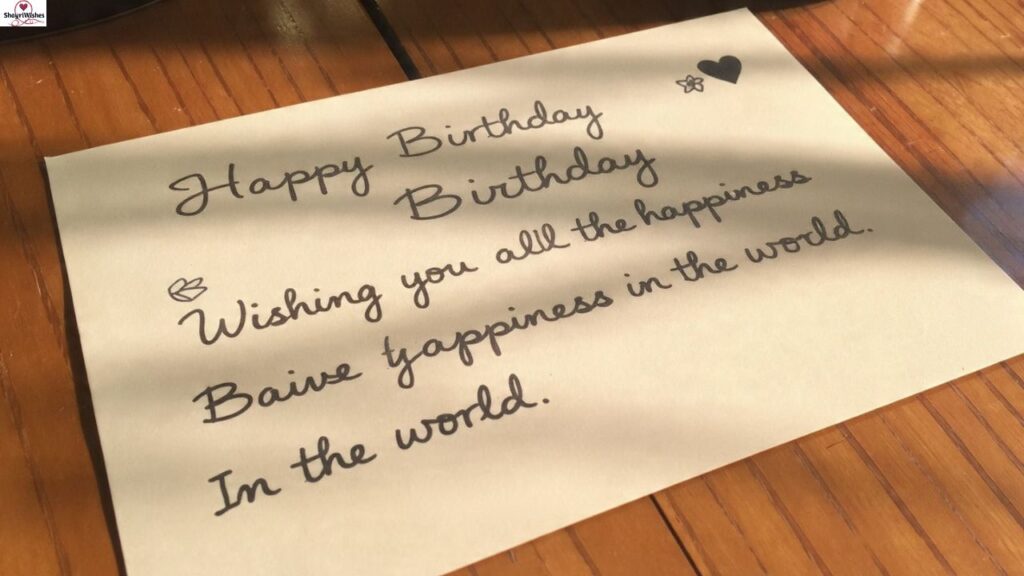 ShayriWishes
Happy Birthday
Birthday
Wishing you alll the happiness
Baive Yappiness in the world.
In the world.